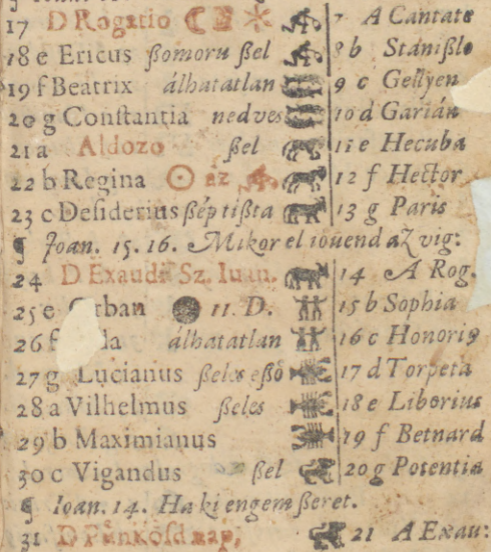 17 D Rogatio 7 A Cantate
18 e Ericus ßomoru ßel 8 b Stanißlo
19 f Beatrix álhatatlan 9 c Gellyen
20 g Conſtantia nedves 10 d Garián
21 a Aldozo ßel 11 e Hecuba
22 b Regina az 12 f Hector
23 c Deſiderius ßép tißta 13 g Paris
¶ Joan. 15. 16. Mikor el iöuend aZ vig:
24 D Exaudi Sz. Iuan. 14 A Rog.
25 e 11. D. 15 b Sophia
26 f álhatatlan 16 c Honori9
27 g Lucianus ßeles eßö 17 d Torpeta
28 a Vilhelmus ßeles 18 e Liborius
29 b Maximianus 19 f Betnard
30 c Vigandus ßel 20 g Potentia
¶ Ioan. 14. Ha ki engem ßeret.
31 D Pünköſd nap, 21 A Exau: